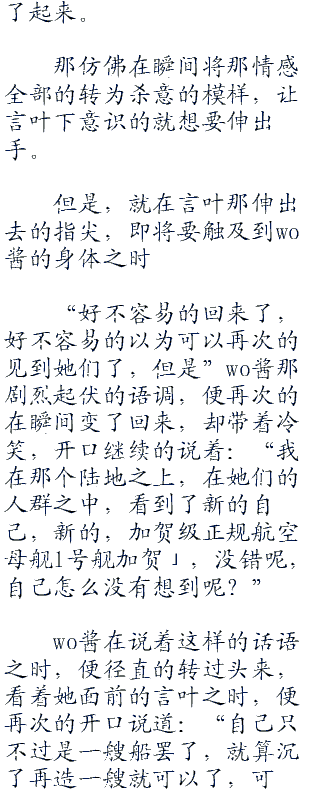 了起来。
那仿佛在瞬间将那情感
全部的转为杀意的模样，让
言叶下意识的就想要伸出
手。
但是，就在言叶那伸出
去的指尖，即将要触及到wo
酱的身体之时
“好不容易的回来了，
好不容易的以为可以再次的
见到她们了，但是”wo酱那
剧烈起伏的语调，便再次的
在瞬间变了回来，却带着冷
笑，开口继续的说着：“我
在那个陆地之上，在她们的
人群之中，看到了新的自
己，新的，加贺级正规航空
母舰1号舰加贺」，没错呢，
自己怎么没有想到呢？”
wo酱在说着这样的话语
之时，便径直的转过头来，
看着她面前的言叶之时，便
再次的开口说道：“自己只
不过是一艘船罢了，就算沉
了再造一艘就可以了，可